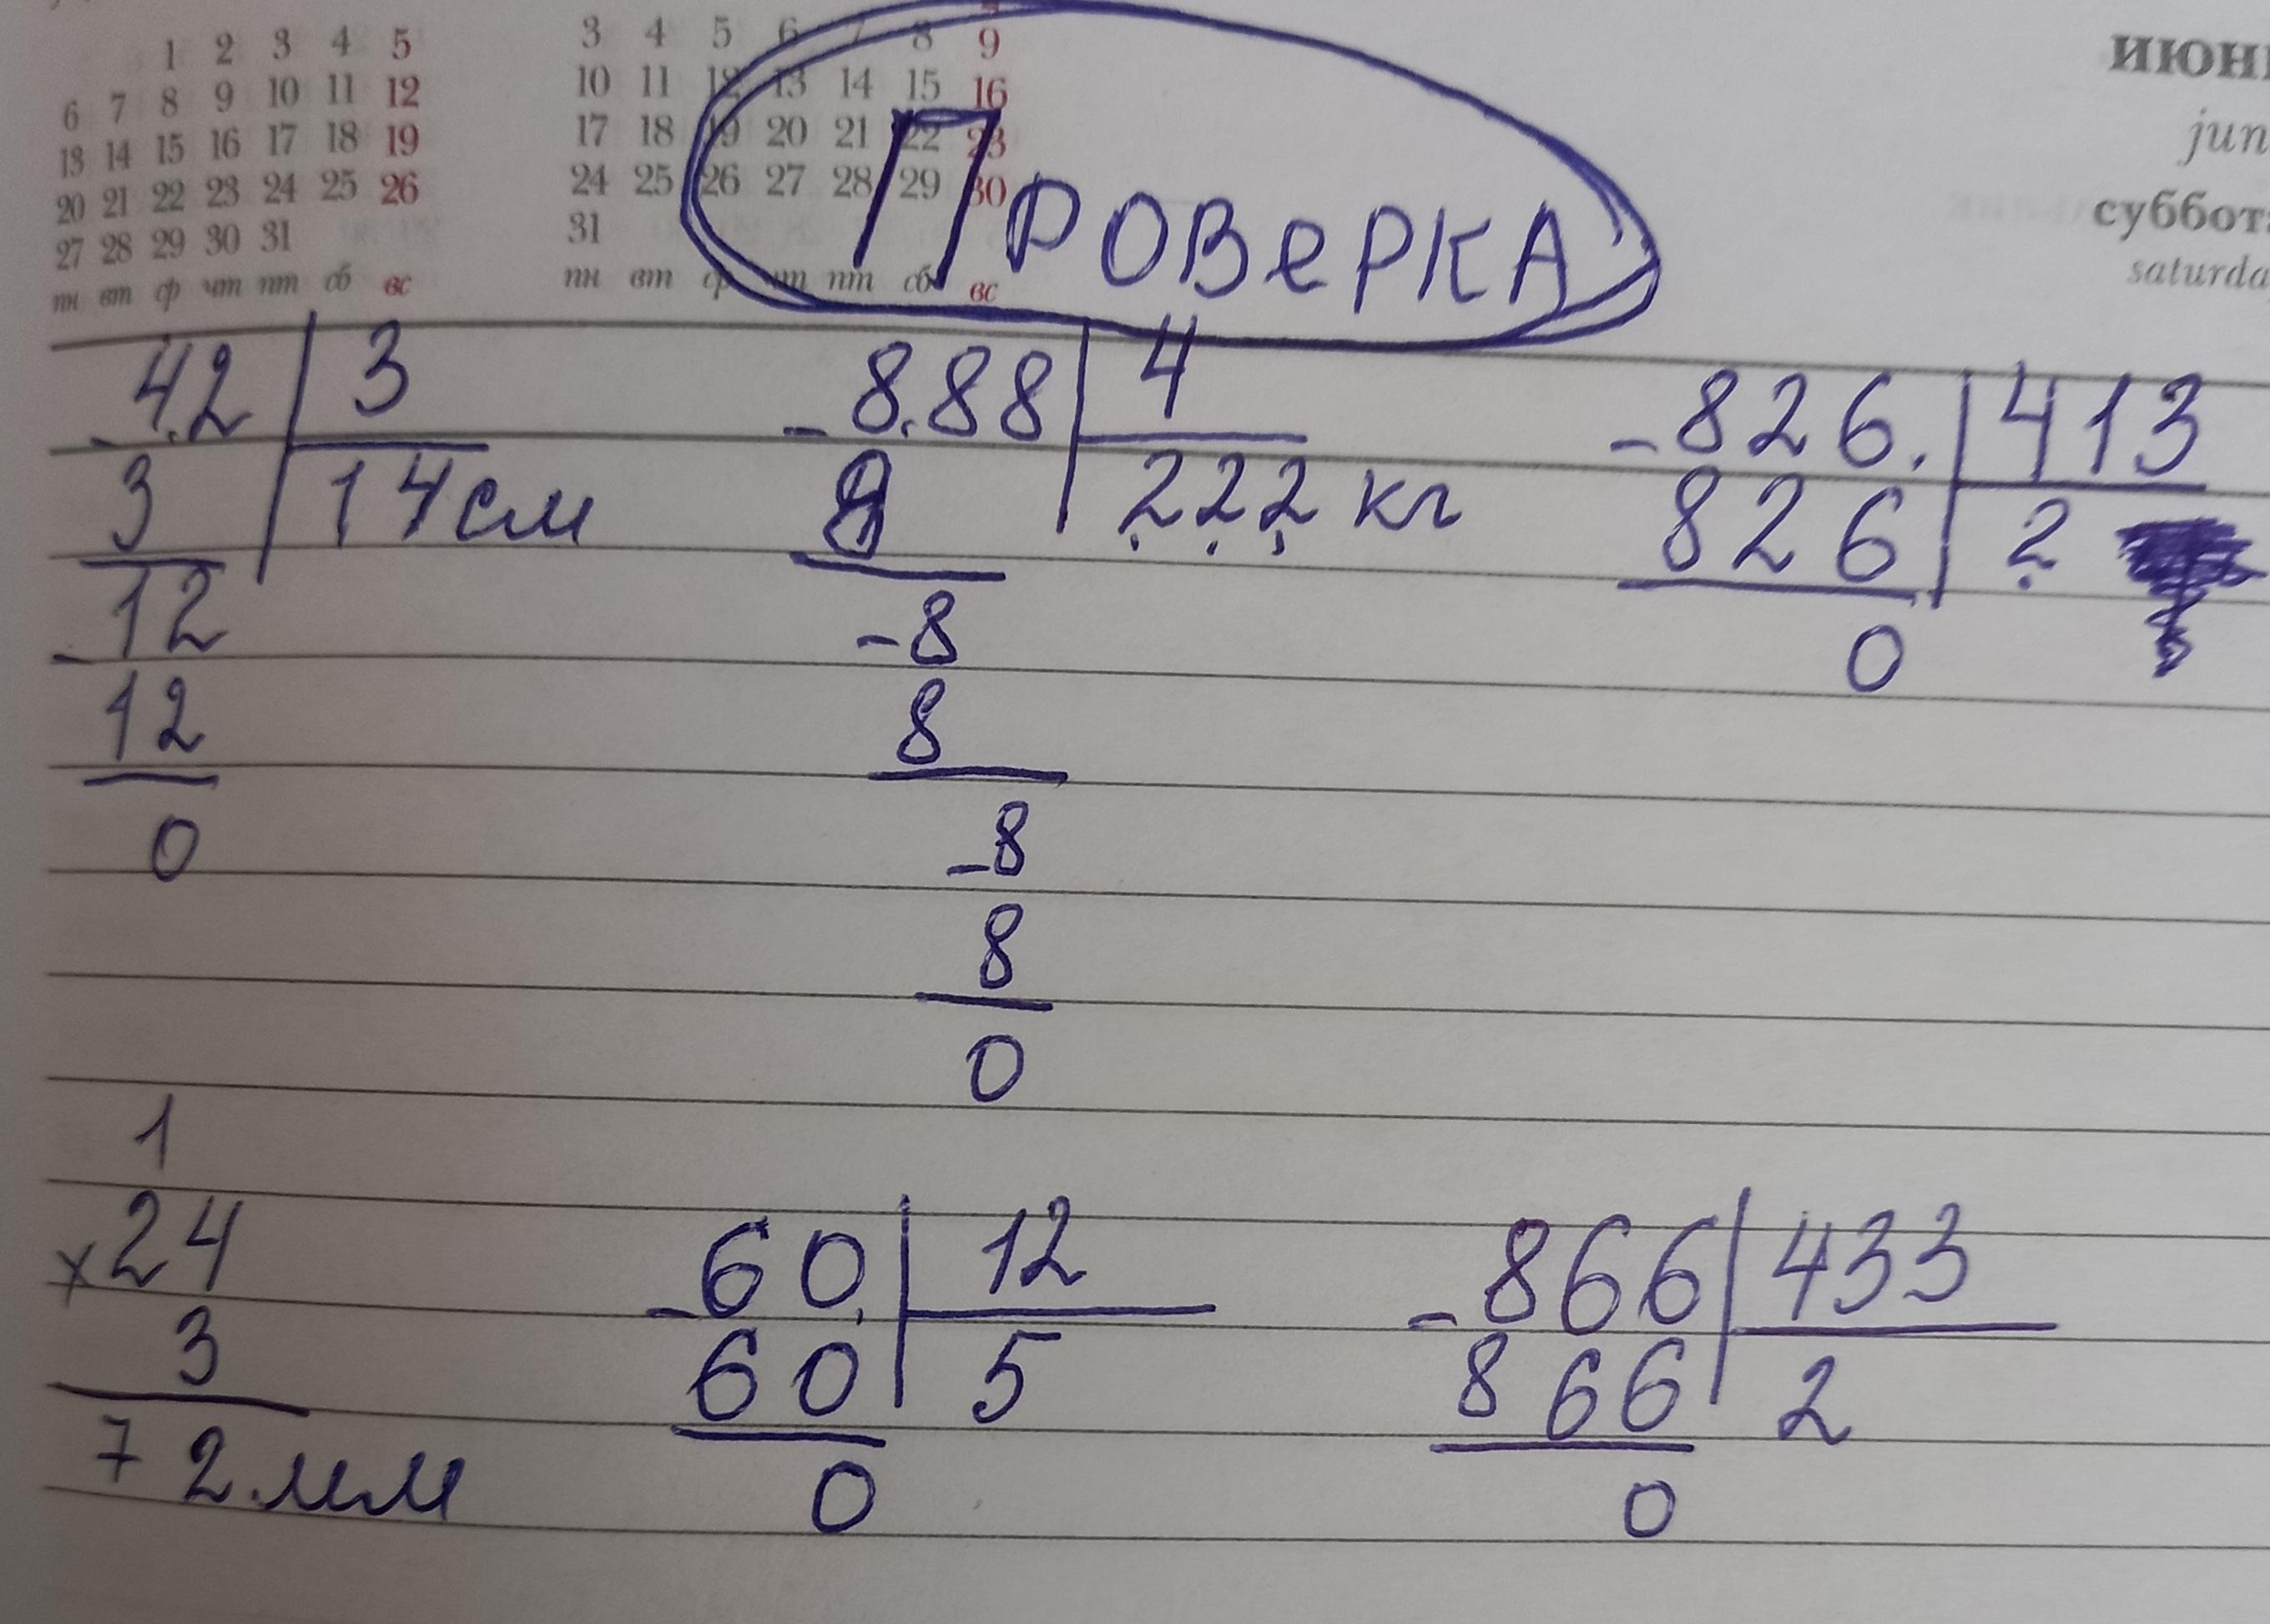 1 2 3 4 5
6 7 8 9 10 11 12
13 14 15 16 17 18 19
20 21 22 23 24 25 26
27 28 29 30 31
пн вт ср чт пт сб вс
3 4 5 6 7 8 9
10 11 12 13 14 15 16
17 18 19 20 21 22 23
24 25 26 27 28 29 30
31
пн вт ср чт пт сб вс
июн
jun
суббот
saturda
ПРОВеРКА
- 42 3
3 14 см
- 12
12
0
- 8.88 4
8 222 кг
- 8
8
- 8
8
0
- 826. 413
826 2
0
1
x 24
3
72 мм
- 60 12
60 5
0
- 866 433
866 2
0